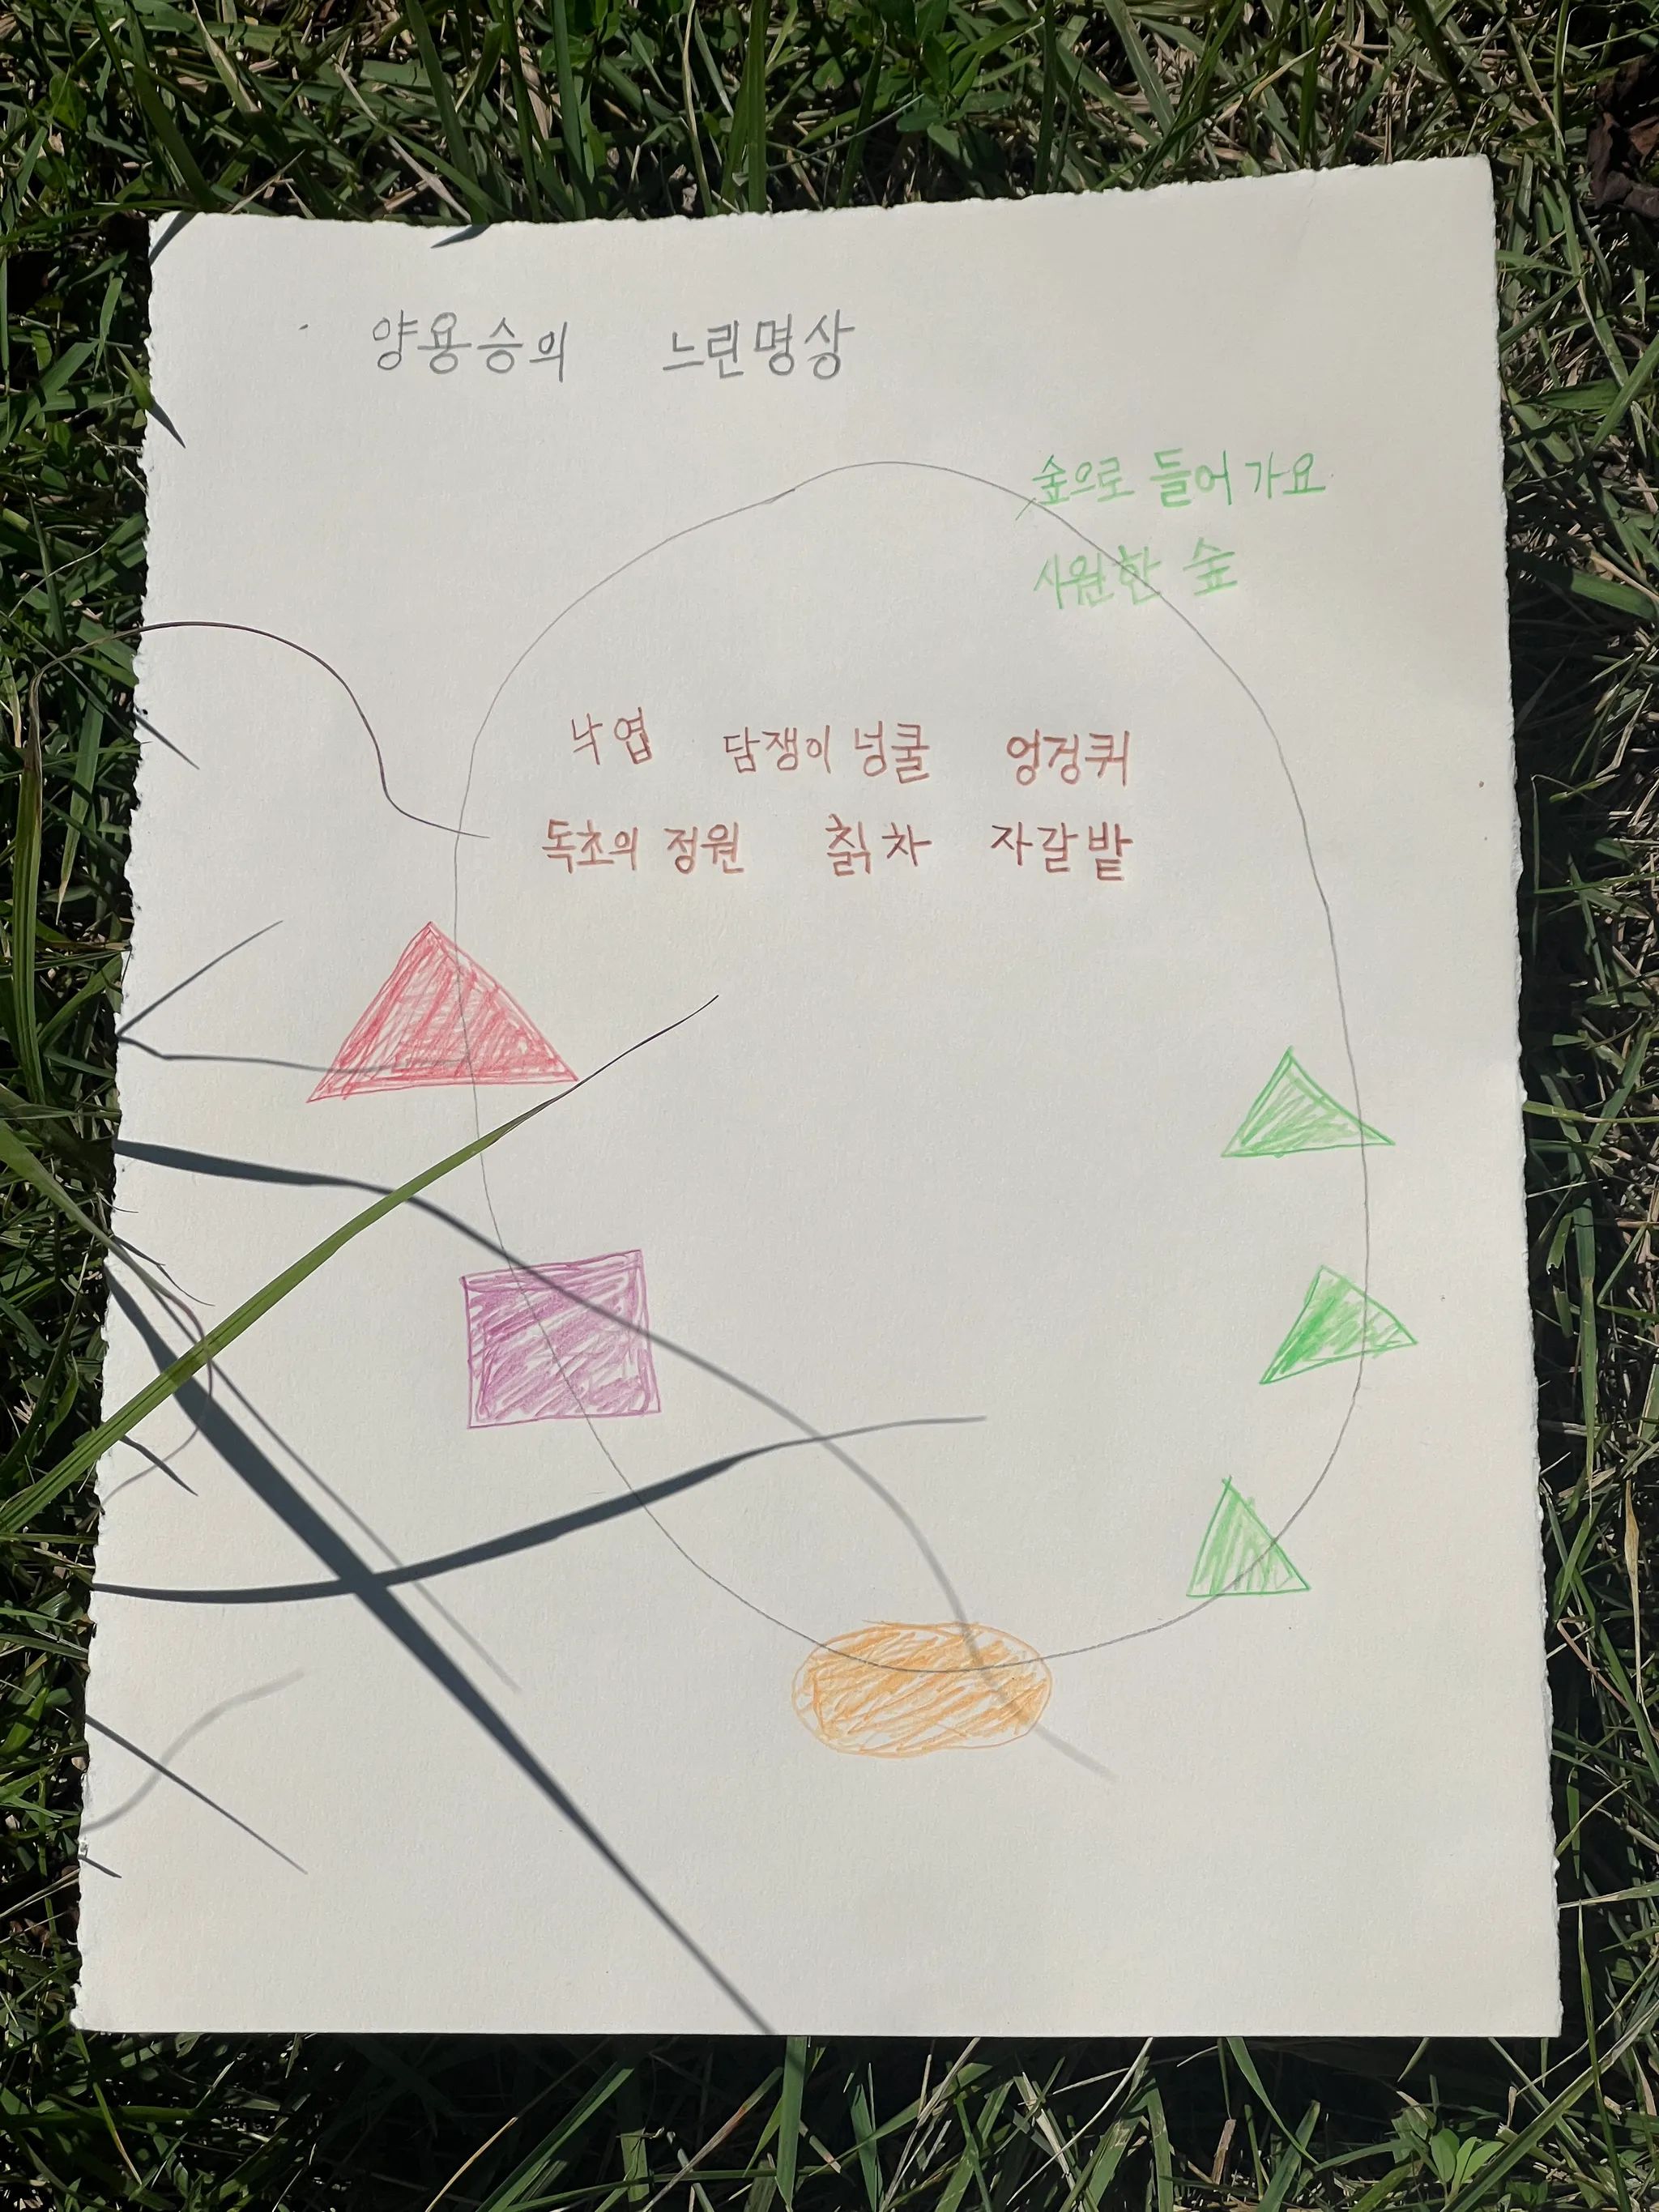 양용승의 느린명상
숲으로 들어가요
사원한 숲
낙엽 담쟁이 넝쿨 엉겅퀴
독초의 정원 칡차 자갈밭